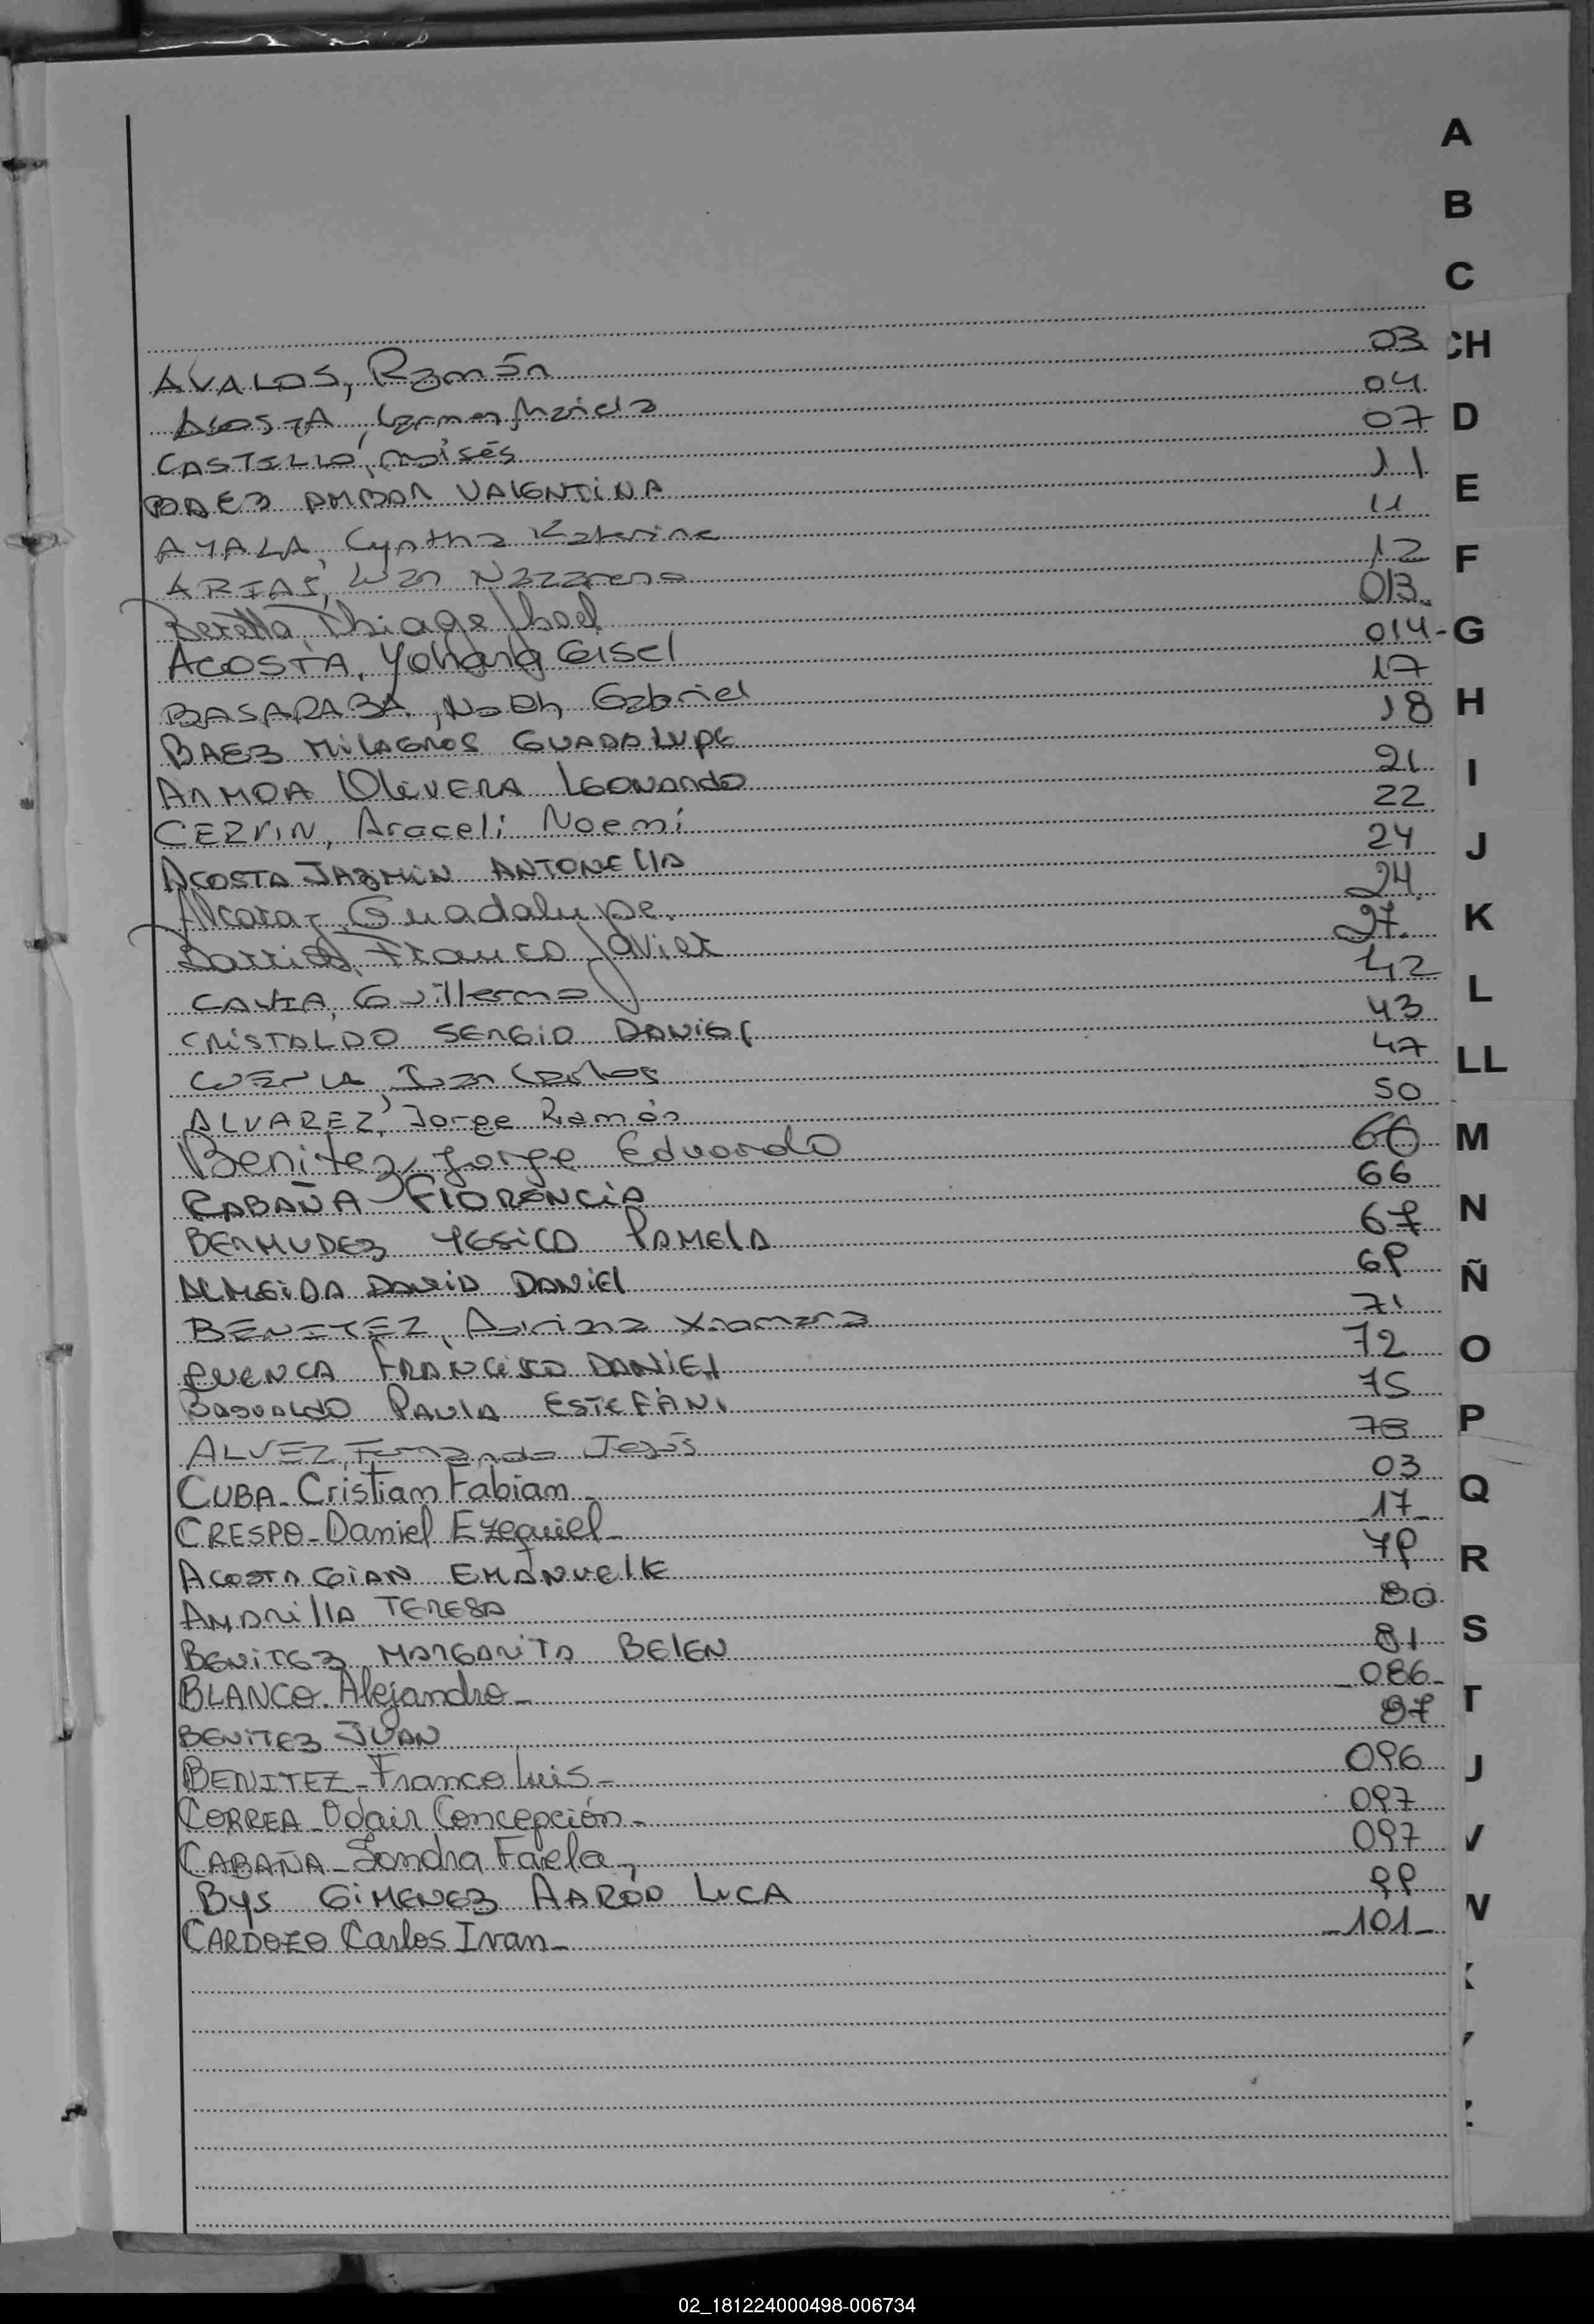 A
B
C
CH
D
E
F
G
H
I
J
K
L
LL
M
N
Ñ
O
P
Q
R
S
T
U
V
W
AVALOS, Ramón 03
ACOSTA, María 04
CASTILLO, Moisés 07
BAEZ AMBAR VALENTINA 11
AYALA, Cynthia Katerine 11
ARIAS, Luan Nazareno 12
Beretta, Thiago Joel 013
ACOSTA, Yohana Gisel 014-
BASARABA, Noah Gabriel 17
BAEZ MILAGROS GUADALUPE 18
ARMOA OLIVERA LEONARDO 21
CEZVIN, Araceli Noemí 22
ACOSTA JAZMIN ANTONELLA 24
Alcaraz, Guadalupe. 24
Barrios, Franco Javier 27.
CAVIA, Guillermo 42
CRISTALDO SERGIO DANIEL 43
Carlos 47
ALVAREZ, Jorge Ramón 50
Benitez, Jorge Eduardo 66
CABAÑA FLORENCIA 66
BERMUDEZ YESICA PAMELA 67
ALMEIDA DAVID DANIEL 69
BENITEZ, Xiomara 71
CUENCA FRANCISCO DANIEL 72
BASUALDO PAULA ESTEFANI 75
ALVEZ, Fernando Jesús 78
CUBA- Cristiam Fabiam - 03
CRESPO- Daniel Ezequiel - 17-
ACOSTA GIAN EMANUELK 79
AMARILLA TERESA 80
BENITEZ MARGARITA BELEN 81
BLANCO. Alejandro - -086-
BENITEZ JUAN 87
BENITEZ- Franco Luis - 096
CORREA- Odair Concepción - 097
CABAÑA- Sandra Faela, 097
BYS GIMENEZ AARÓN LUCA 99
CARDOZO Carlos Ivan - -101-
02_181224000498-006734